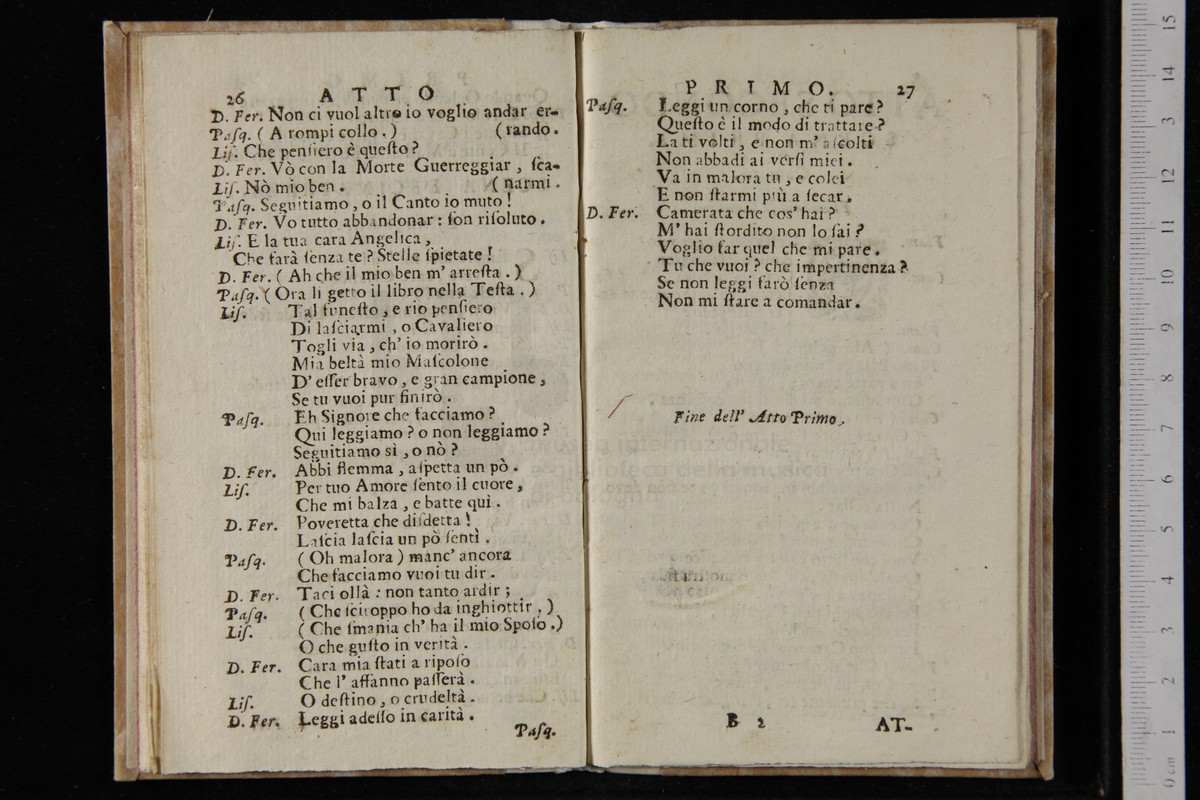 26 ATTO
D. Fer. Non ci vuol altro io voglio andar er-
Paſq. ( A rompi collo . ) ( rando .
Liſ. Che penſiero è queſto ?
D. Fer. Vò con la Morte Guerreggiar , ſca-
Liſ. Nò mio ben . ( narmi .
Paſq. Seguitiamo , o il Canto io muto !
D. Fer. Vo tutto abbandonar : ſon riſoluto .
Liſ. E la tua cara Angelica ,
Che farà ſenza te ? Stelle ſpietate !
D. Fer. ( Ah che il mio ben m' arreſta . )
Paſq. ( Ora li getto il libro nella Teſta . )
Liſ. Tal funeſto , e rio penſiero
Di laſciarmi , o Cavaliero
Togli via , ch' io morirò .
Mia beltà mio Maſcolone
D' eſſer bravo , e gran campione ,
Se tu vuoi pur finirò .
Paſq. Eh Signore che facciamo ?
Qui leggiamo ? o non leggiamo ?
Seguitiamo sì , o nò ?
D. Fer. Abbi flemma , aſpetta un pò .
Liſ. Per tuo Amore ſento il cuore ,
Che mi balza , e batte quì .
D. Fer. Poveretta che diſdetta !
Laſcia laſcia un pò ſenti .
Paſq. ( Oh malora ) manc' ancora
Che facciamo vuoi tu dir .
D. Fer. Taci ollà : non tanto ardir ;
Paſq. ( Che ſciroppo ho da inghiottir . )
Liſ. ( Che ſmania ch' ha il mio Spoſo .)
O che guſto in verità .
D. Fer. Cara mia ſtati a ripoſo
Che l' affanno paſſerà .
Liſ. O deſtino , o crudeltà .
D. Fer. Leggi adeſſo in carità .
Paſq.
PRIMO. 27
Paſq. Leggi un corno , che ti pare ?
Queſto è il modo di trattare ?
La ti volti , e non m' aſcolti
Non abbadi ai verſi miei .
Va in malora tu , e colei
E non ſtarmi più a ſecar .
D. Fer. Camerata che cos' hai ?
M' hai ſtordito non lo ſai ?
Voglio far quel che mi pare .
Tu che vuoi ? che impertinenza ?
Se non leggi farò ſenza
Non mi ſtare a comandar .
Fine dell' Atto Primo .
museo internazionale
e biblioteca della musica
di bologna
B 2 AT-
15
14
13
12
11
10
9
8
7
6
5
4
3
2
1
0 cm